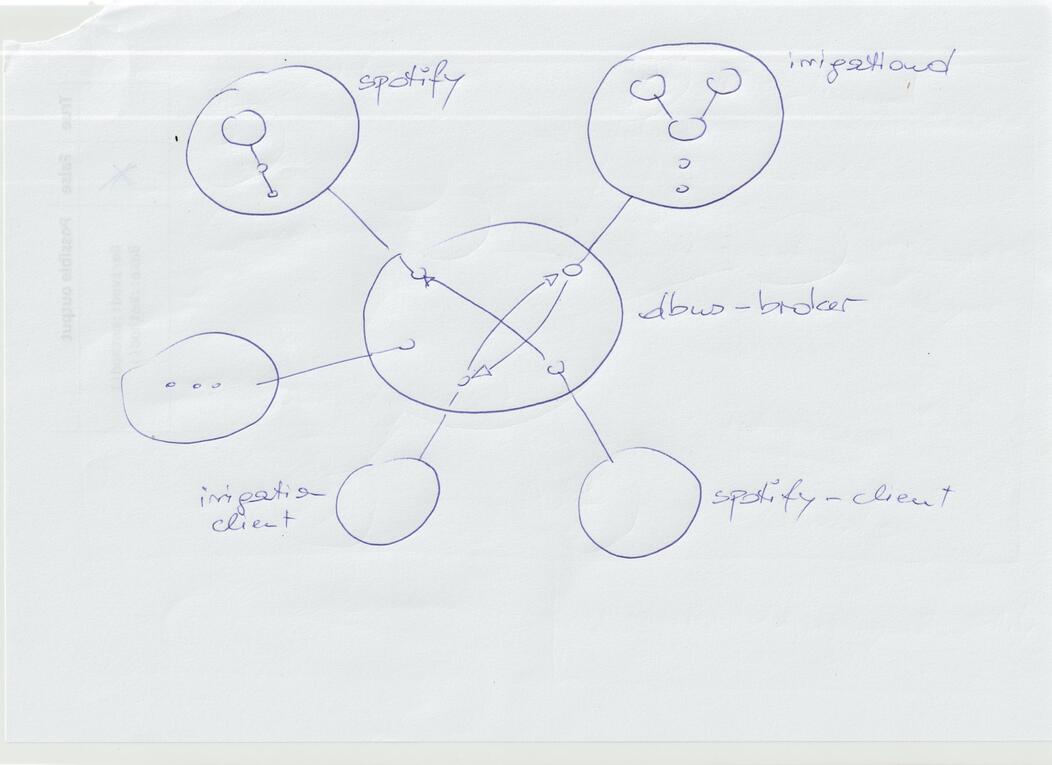 spotify
irrigationd
dbus-broker
...
irrigation
client
spotify-client
True
False
Possible output